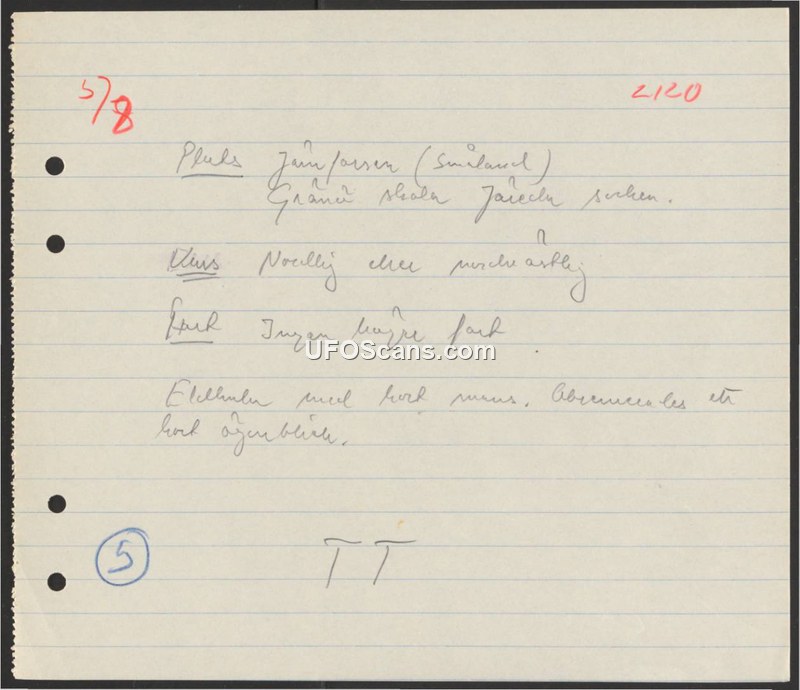 5/8
2120
Plats Järnforsen (Småland)
Gränd skolan Järeda socken.
Kurs Nordlig eller nordvästlig
Fart Ingen högre fart.
UFOScans.com
Eldkula med kort svans. Observerades ett
kort ögonblick.
5
TT